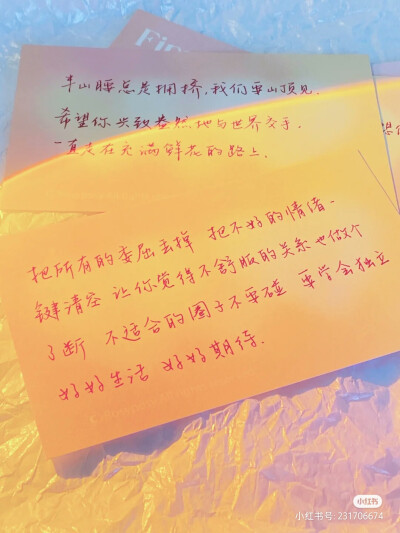 Fi
半山腰总是拥挤,我们要山顶见.
希望你兴致盎然地与世界交手.
一直走在充满鲜花的路上.
把所有的委屈丢掉 把不好的情绪一
键清空 让你觉得不舒服的关系也做个
了断 不适合的圈子不要碰 要学会独立
好好生活 好好期待.
小红书
小红书号:231706674